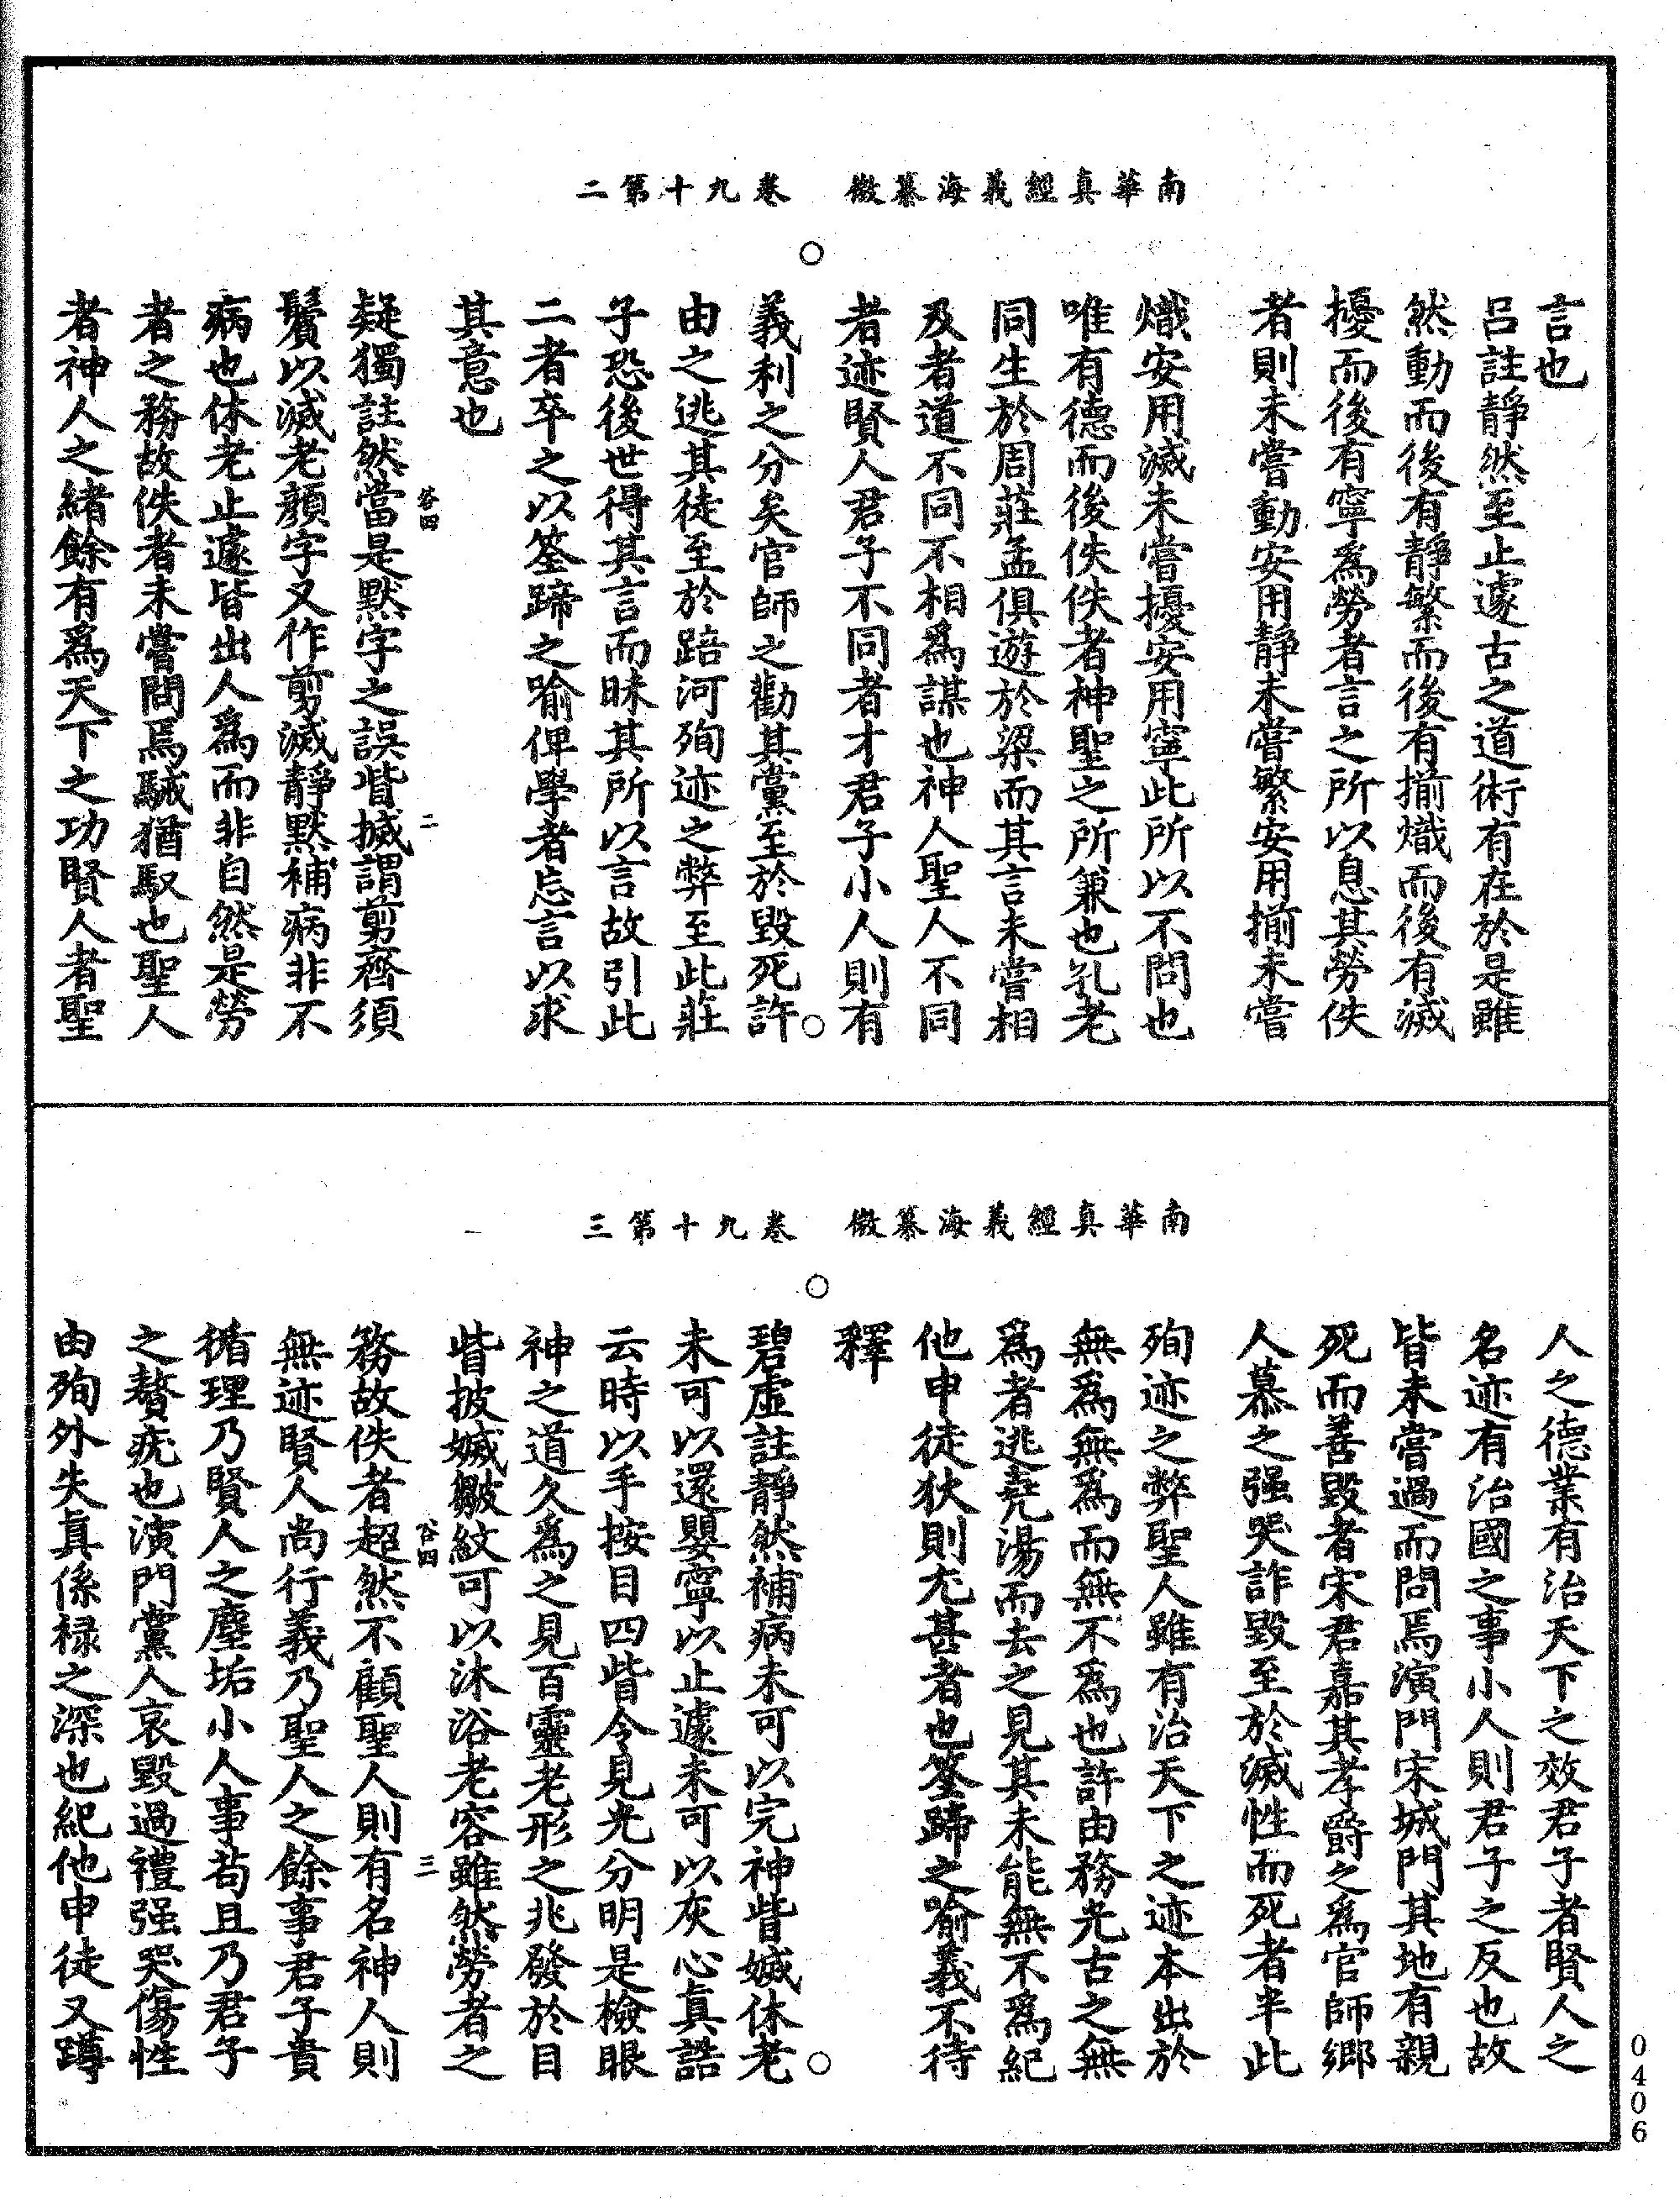 南華真經義海纂微　卷九十第二
言也
呂註靜然至止遽古之道術有在於是雖
然動而後有靜繁而後有揃熾而後有滅
擾而後有寧爲勞者言之所以息其勞佚
者則未嘗動安用靜未嘗繁安用揃未嘗
熾安用滅未嘗擾安用寧此所以不問也
唯有德而後佚佚者神聖之所兼也孔老
同生於周莊孟俱遊於梁而其言未嘗相
及者道不同不相爲謀也神人聖人不同
者迹賢人君子不同者才君子小人則有
義利之分矣官師之勸其黨至於毀死許
由之逃其徒至於踣河殉迹之弊至此莊
子恐後世得其言而昧其所以言故引此
二者卒之以筌蹄之喻俾學者忘言以求
其意也
荅四
二
疑獨註然當是黙字之誤眥搣謂剪齊須
鬢以滅老顏字又作剪滅靜黙補病非不
病也休老止遽皆出人爲而非自然是勞
者之務故佚者未嘗問焉駴猶馭也聖人
者神人之緒餘有爲天下之功賢人者聖
南華真經義海纂微　卷九十第三
人之德業有治天下之效君子者賢人之
名迹有治國之事小人則君子之反也故
皆未嘗過而問焉演門宋城門其地有親
死而善毀者宋君嘉其孝爵之爲官師鄉
人慕之强哭詐毀至於滅性而死者半此
殉迹之弊聖人雖有治天下之迹本出於
無爲無爲而無不爲也許由務光古之無
爲者逃堯湯而去之見其未能無不爲紀
他申徒狄則尤甚者也筌蹄之喻義不待
釋
碧虛註靜然補病未可以完神眥㛽休老
未可以還嬰寧以止遽未可以灰心真誥
云時以手按目四眥令見光分明是檢眼
神之道久爲之見百靈老形之兆發於目
眥披㛽皺紋可以沐浴老容雖然勞者之
荅四
三
務故佚者超然不顧聖人則有名神人則
無迹賢人尚行義乃聖人之餘事君子貴
循理乃賢人之塵垢小人事苟且乃君子
之贅疣也演門黨人哀毀過禮强哭傷性
由殉外失真係祿之深也紀他申徒又蹲
0406